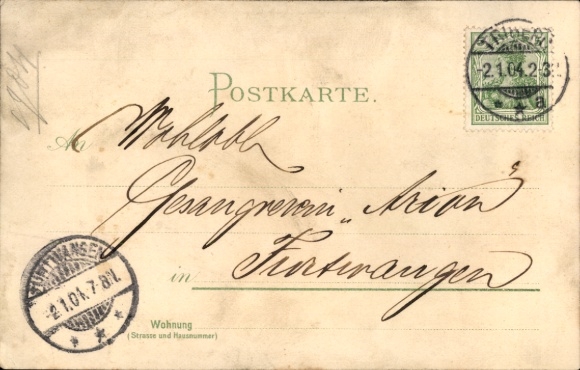 TRIBERG
2.1.04.2-3N.
a
DEUTSCHES REICH
POSTKARTE.
An Wohllöbl.
Gesangverein „Arion“
in Furtwangen
FURTWANGEN
2.1.04.7-8N.
Wohnung
(Strasse und Hausnummer)